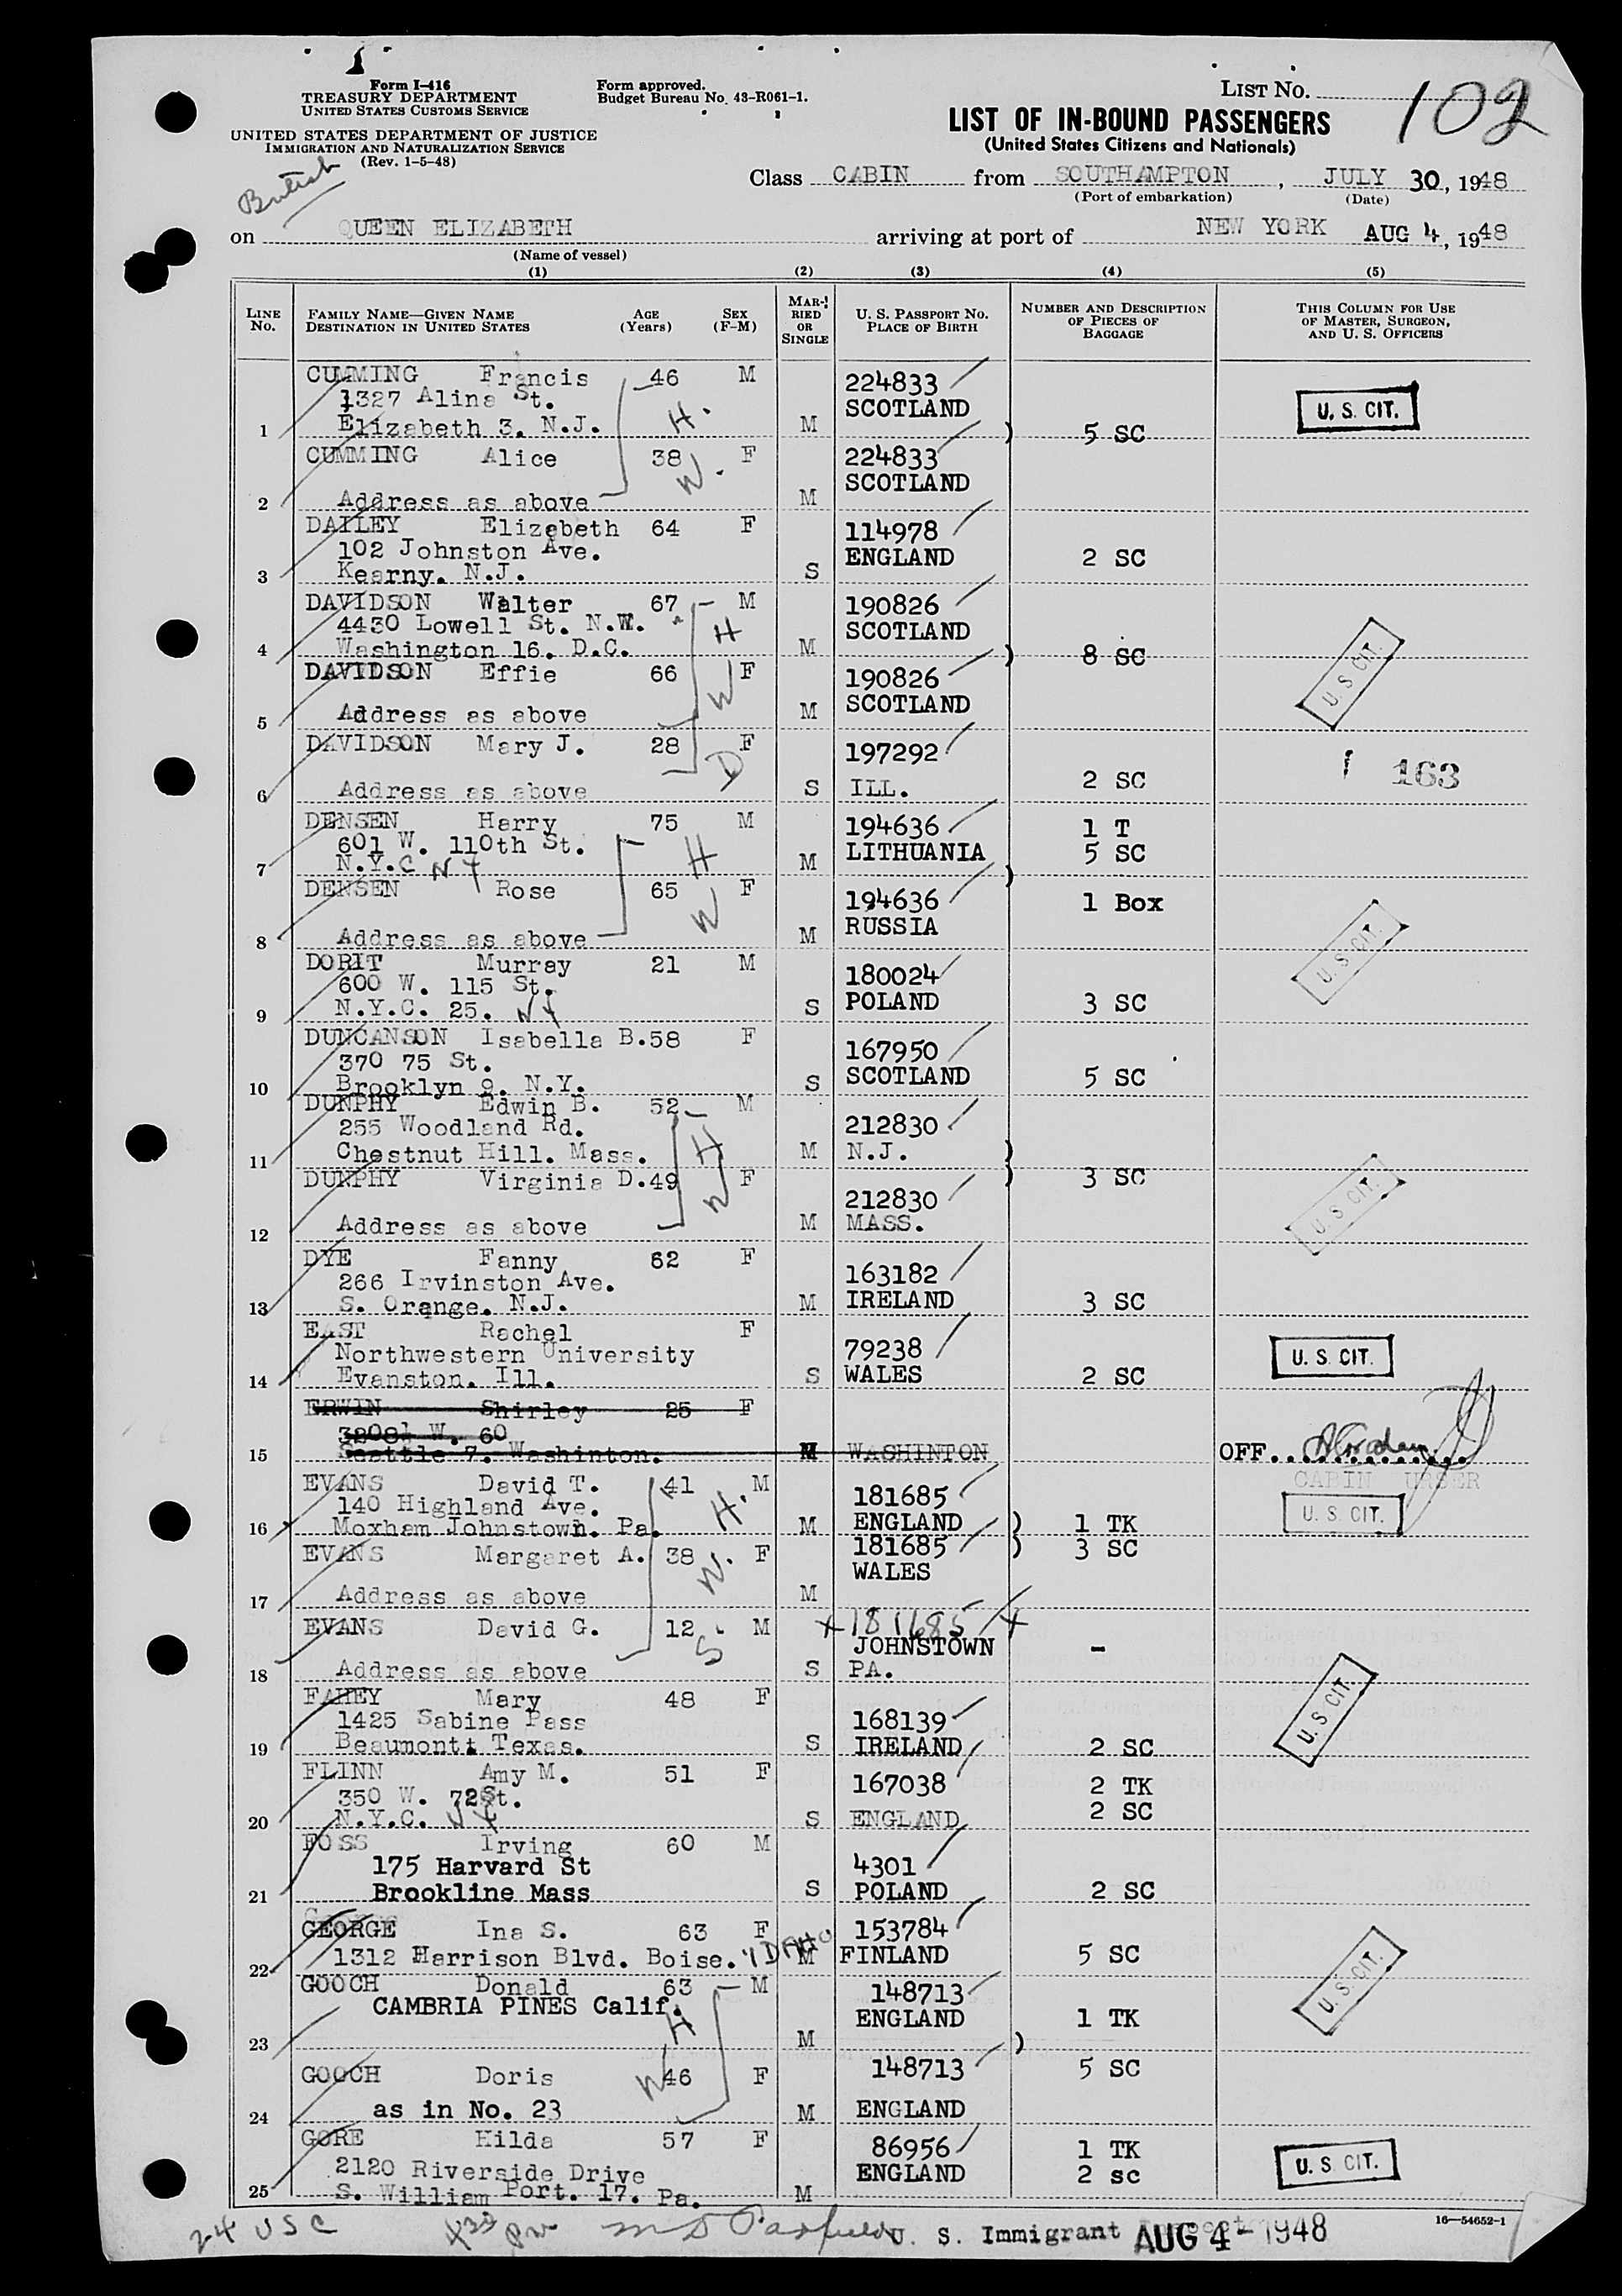 Form I-416
TREASURY DEPARTMENT
UNITED STATES CUSTOMS SERVICE
UNITED STATES DEPARTMENT OF JUSTICE
IMMIGRATION AND NATURALIZATION SERVICE
(Rev. 1-5-48)
British
Form approved.
Budget Bureau No. 43-R061-1.
LIST NO. 102
LIST OF IN-BOUND PASSENGERS
(United States Citizens and Nationals)
Class CABIN from SOUTHAMPTON, JULY 30, 1948
(Port of embarkation) (Date)
on QUEEN ELIZABETH arriving at port of NEW YORK AUG 4, 1948
(Name of vessel)
(1) (2) (3) (4) (5)
LINE No. FAMILY NAME—GIVEN NAME DESTINATION IN UNITED STATES AGE (Years) SEX (F-M) MARRIED OR SINGLE U. S. PASSPORT NO. PLACE OF BIRTH NUMBER AND DESCRIPTION OF PIECES OF BAGGAGE THIS COLUMN FOR USE OF MASTER, SURGEON, AND U. S. OFFICERS
CUMMING Francis 46 M 224833
1327 Alina St. H. SCOTLAND U. S. CIT.
1 Elizabeth 3. N.J. M ) 5 SC
CUMMING Alice 38 F 224833
W. SCOTLAND
2 Address as above M
DAILEY Elizabeth 64 F 114978
102 Johnston Ave. ENGLAND 2 SC
3 Kearny. N.J. S
DAVIDSON Walter 67 M 190826
4430 Lowell St. N.W. H SCOTLAND
4 Washington 16. D.C. M ) 8 SC
DAVIDSON Effie 66 F 190826 U. S. CIT.
W SCOTLAND
5 Address as above M
DAVIDSON Mary J. 28 F 197292
D 163
6 Address as above S ILL. 2 SC
DENSEN Harry 75 M 194636 1 T
601 W. 110th St. H LITHUANIA 5 SC
7 N.Y.C NY M )
DENSEN Rose 65 F 194636 1 Box
W RUSSIA
8 Address as above M U. S. CIT.
DORIT Murray 21 M 180024
600 W. 115 St. POLAND 3 SC
9 N.Y.C. 25. NY S
DUNCANSON Isabella B. 58 F 167950
370 75 St. SCOTLAND 5 SC
10 Brooklyn 9. N.Y. S
DUNPHY Edwin B. 52 M 212830
255 Woodland Rd. H
11 Chestnut Hill. Mass. M N.J. )
DUNPHY Virginia D. 49 F 212830 ) 3 SC U. S. CIT.
W
12 Address as above M MASS.
DYE Fanny 62 F 163182
266 Irvinston Ave. IRELAND 3 SC
13 S. Orange. N.J. M
EAST Rachel F 79238
Northwestern University U. S. CIT.
14 Evanston. Ill. S WALES 2 SC
ERWIN Shirley 25 F
3208½ W. 60
15 Seattle 7. Washinton. M WASHINTON OFF.
CABIN URSER
EVANS David T. 41 M 181685
140 Highland Ave. H. ENGLAND ) 1 TK U. S. CIT.
16 Moxham Johnstown. Pa. M
EVANS Margaret A. 38 F 181685 ) 3 SC
W. WALES
17 Address as above M
EVANS David G. 12 M x 181685 x
S JOHNSTOWN -
18 Address as above S PA.
FAHEY Mary 48 F 168139
1425 Sabine Pass U. S. CIT.
19 Beaumontt Texas. S IRELAND 2 SC
FLINN Amy M. 51 F 167038 2 TK
350 W. 72St. 2 SC
20 N.Y.C. NY S ENGLAND
FOSS Irving 60 M 4301
175 Harvard St
21 Brookline Mass S POLAND 2 SC
GEORGE Ina S. 63 F 153784
22 1312 Harrison Blvd. Boise. IDAHO M FINLAND 5 SC
GOOCH Donald 63 M 148713 U. S. CIT.
CAMBRIA PINES Calif. H ENGLAND 1 TK
23 M )
GOOCH Doris 46 F 148713 5 SC
W
24 as in No. 23 M ENGLAND
GORE Hilda 57 F 86956 1 TK
2120 Riverside Drive ENGLAND 2 sc U. S. CIT.
25 S. William Port. 17. Pa. M
24 USC U. S. Immigrant Inspector AUG 4 - 1948 16—54652-1